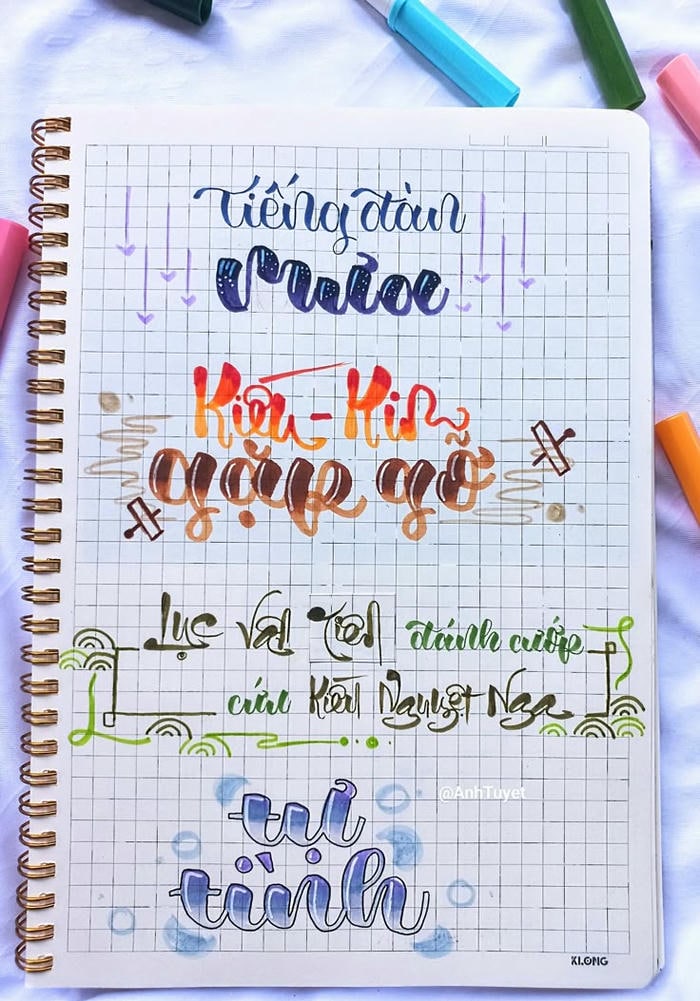 Tiếng đàn
mưa
Kiều - Kim
gặp gỡ
Lục Vân Tiên đánh cướp
cứu Kiều Nguyệt Nga
@AnhTuyet
tự
tình
KLONG